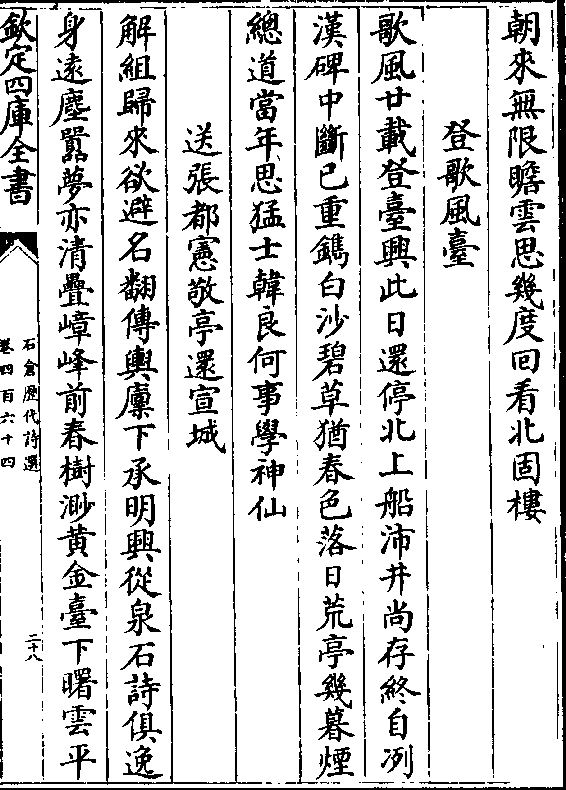 朝來無限瞻雲思幾度回看北固樓
登歌風臺
歌風廿載登臺興此日還停北上船沛井尚存終自冽
漢碑中斷已重鐫白沙碧草猶春色落日荒亭幾暮煙
總道當年思猛士韓良何事學神仙
送張都憲敬亭還宣城
解組歸來欲避名翻傳輿廩下承明興從泉石詩俱逸
身遠塵囂夢亦清疊嶂峰前春樹渺黃金臺下曙雲平
欽定四庫全書
石倉歷代詩選
卷四百六十四
二十八